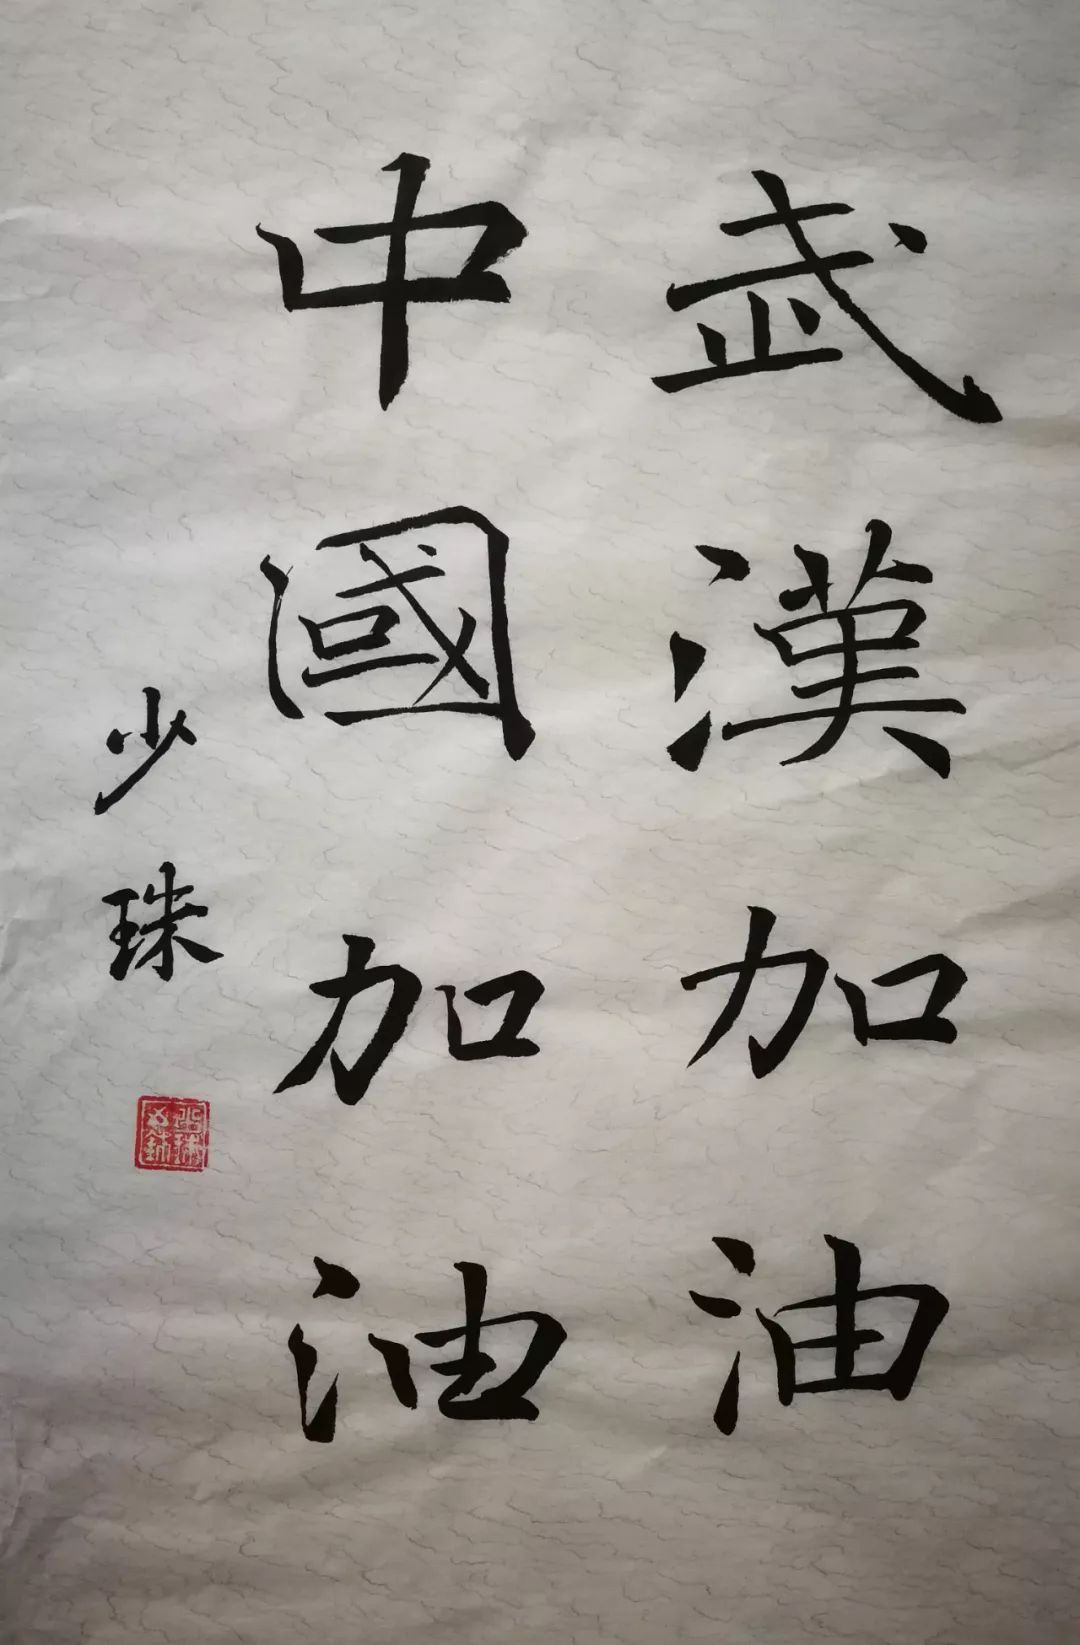 武漢加油
中國加油
少珠